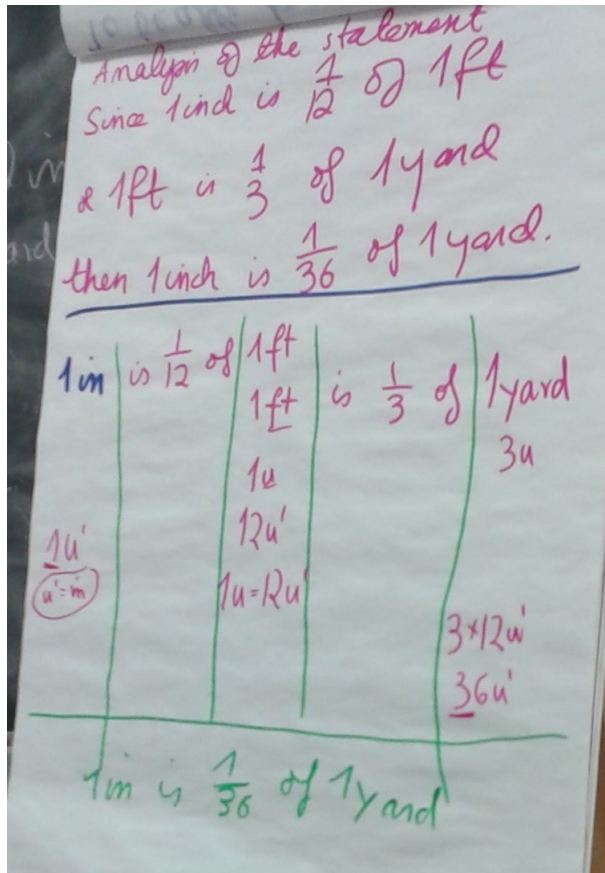 Analysis of the statement
Since 1 inch is 1/12 of 1ft
& 1ft is 1/3 of 1yard
then 1 inch is 1/36 of 1yard.
1in is 1/12 of 1ft
1ft is 1/3 of 1yard
1u 3u
12u'
1u'
u'=in
1u=12u'
3×12u'
36u'
1in is 1/36 of 1yard